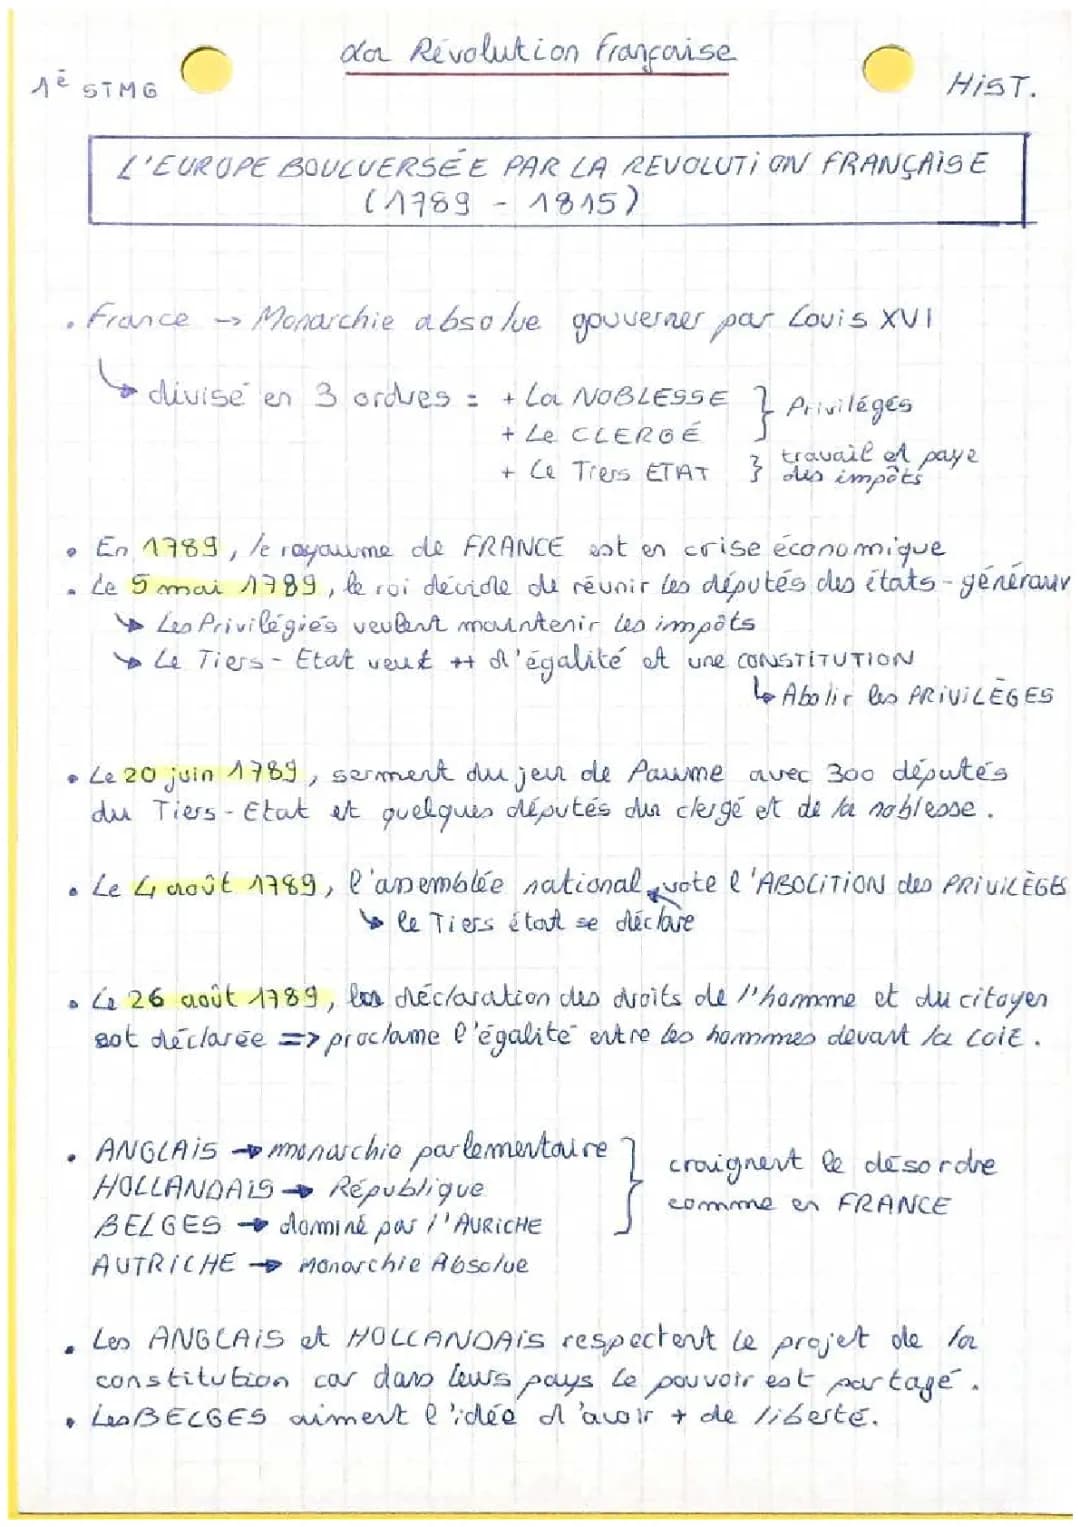 La Révolution Française
1è STMG
HIST.
L'EUROPE BOULVERSÉE PAR LA REVOLUTION FRANÇAISE
(1789 - 1815)
• France → Monarchie absolue gouverner par Louis XVI
↳ divisé en 3 ordres = + La NOBLESSE } Privilégés
+ Le CLERGÉ
+ Le Tiers ETAT } travail et paye des impôts
• En 1789, le royaume de FRANCE est en crise économique
• Le 5 mai 1789, le roi décide de réunir les députés des états-généraux
↳ Les Privilégiés veulent maintenir les impôts
↳ Le Tiers-Etat veut ++ d'égalité et une CONSTITUTION
↳ Abolir les PRIVILÈGES
• Le 20 juin 1789, serment du jeu de Paume avec 300 députés
du Tiers-Etat et quelques députés du clergé et de la noblesse.
• Le 4 août 1789, l'assemblée national vote l'ABOLITION des PRIVILÈGES
↳ le Tiers état se déclare
• Le 26 août 1789, la déclaration des droits de l'homme et du citoyen
est déclarée => proclame l'égalité entre les hommes devant la loie.
• ANGLAIS → monarchie parlementaire } craignent le désordre
HOLLANDAIS → République
comme en FRANCE
BELGES → dominé par l'AURICHE
AUTRICHE → Monarchie Absolue
• Les ANGLAIS et HOLLANDAIS respectent le projet de la
constitution car dans leurs pays le pouvoir est partagé.
• Les BELGES aiment l'idée d'avoir + de liberté.